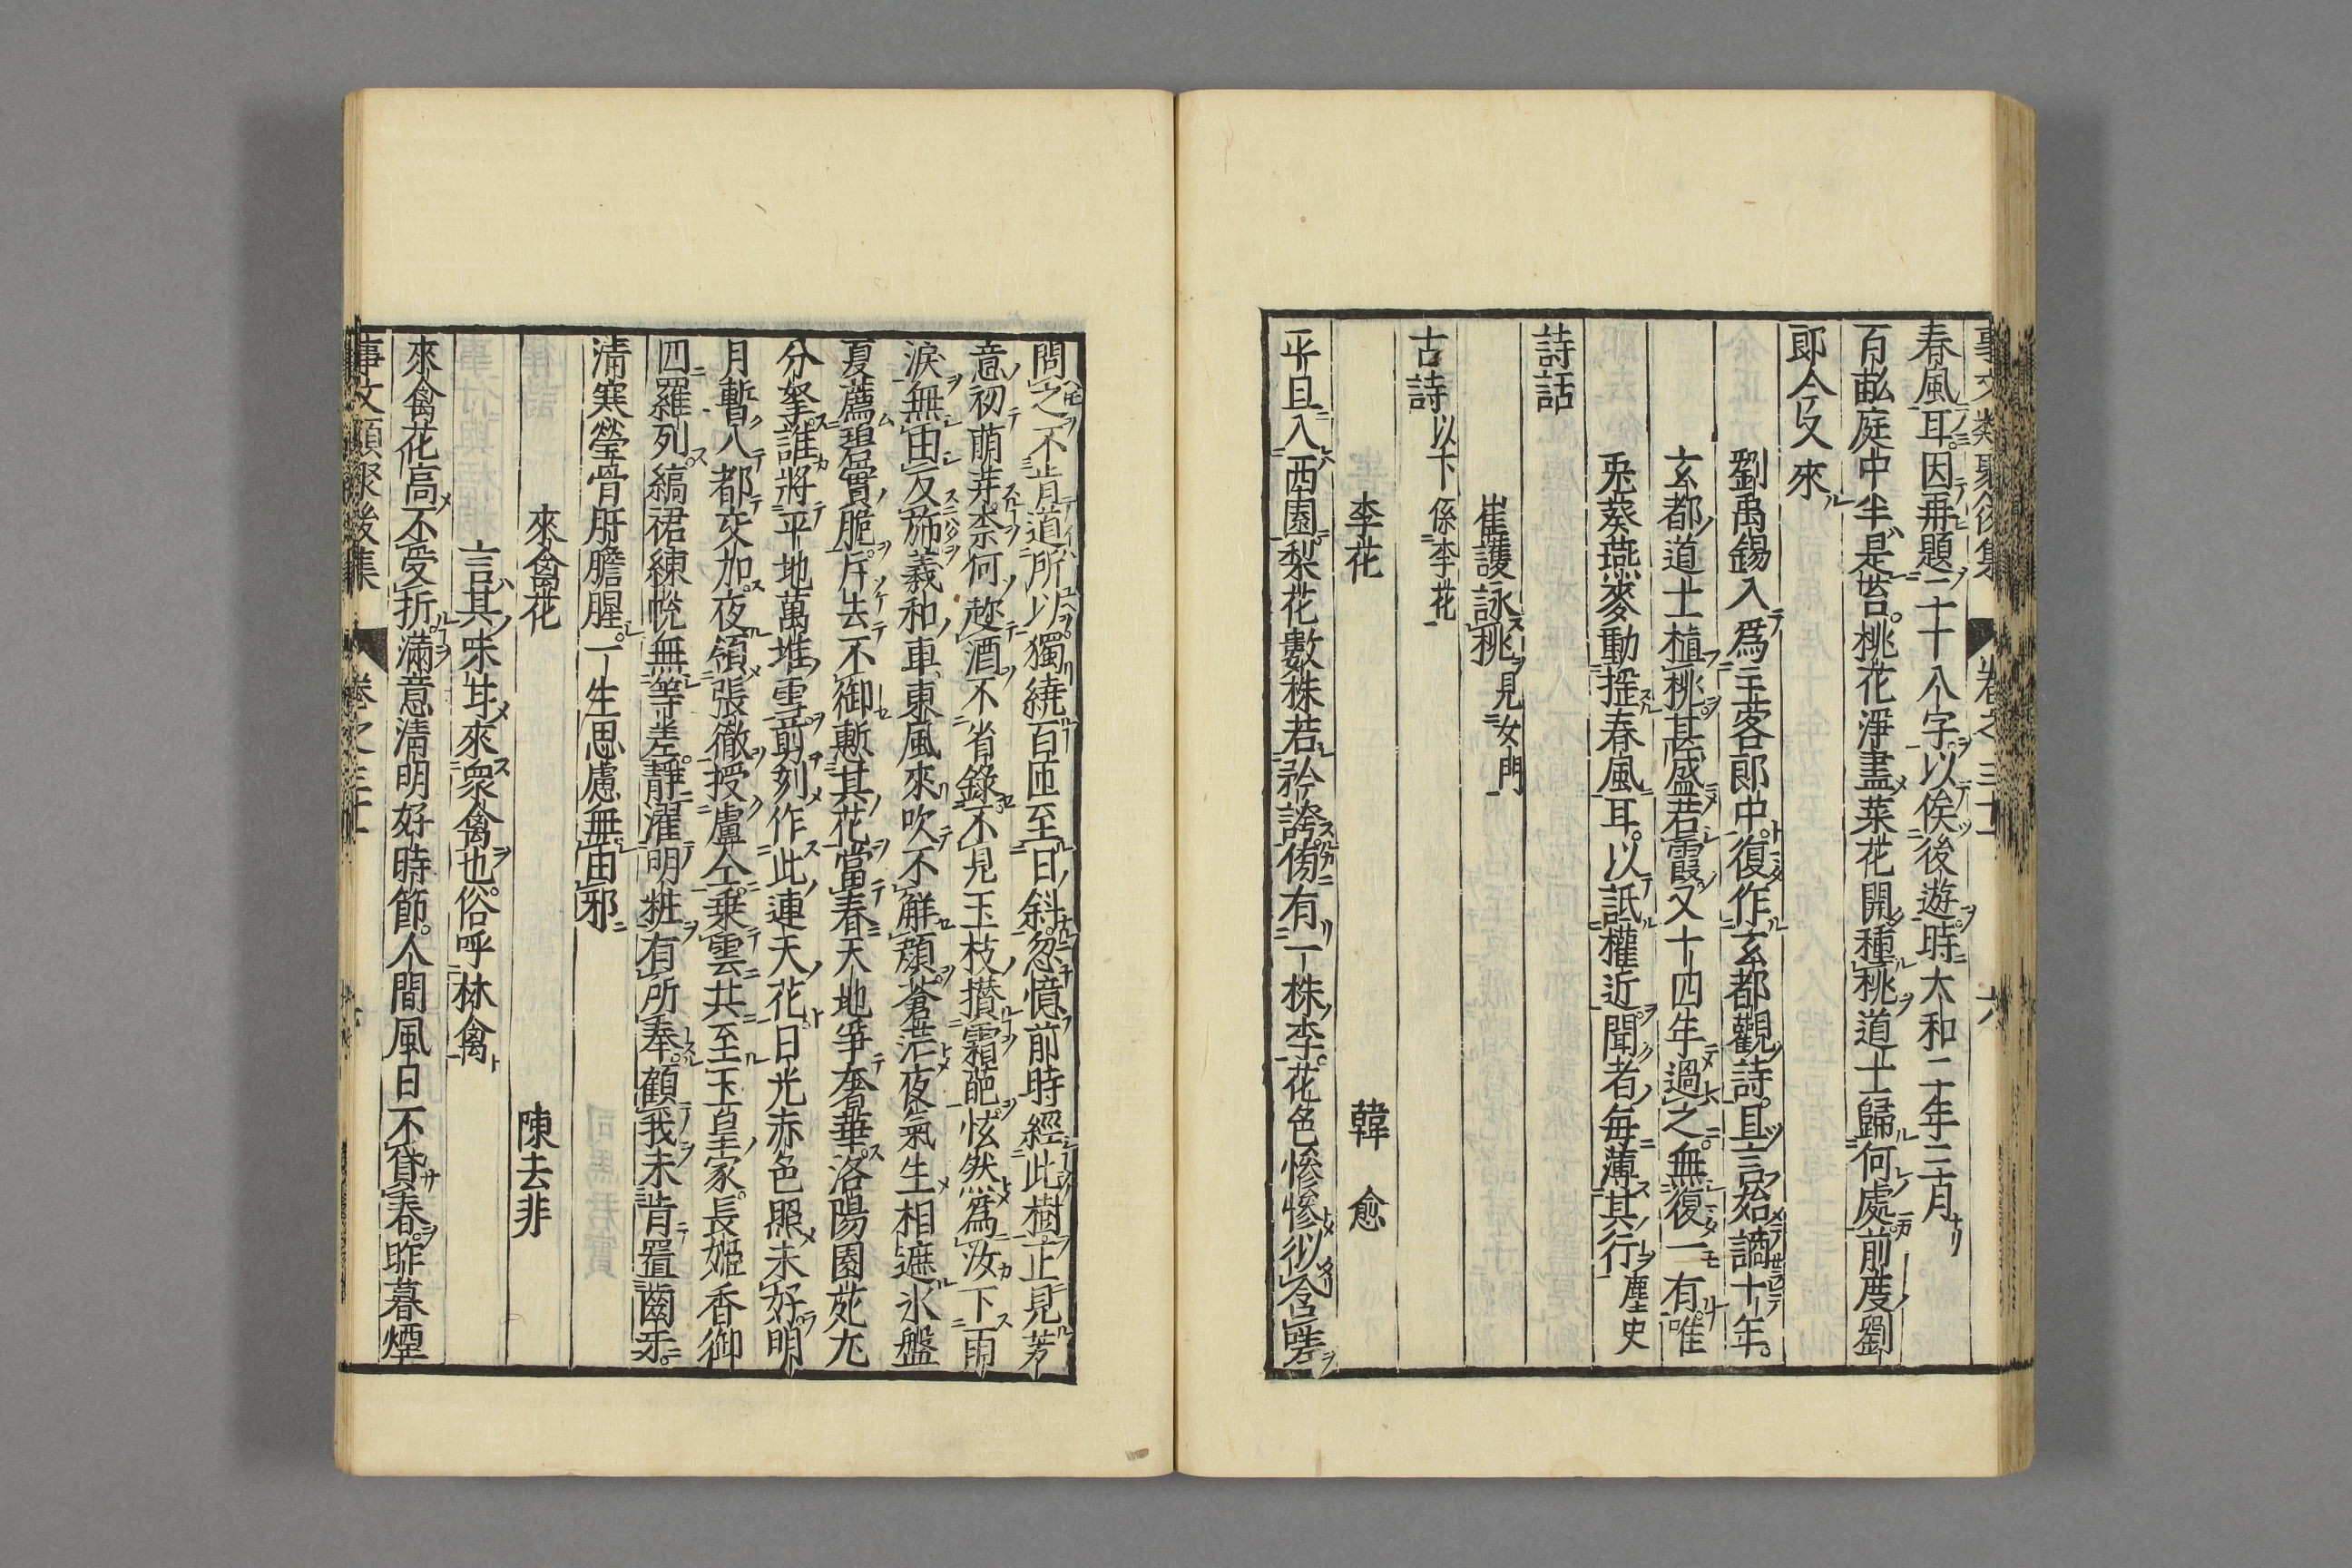 事文類聚後集 卷之三十一 六
春風耳因再題二十八字以俟後遊時大和二年三月
百畝庭中半是苔桃花淨盡菜花開種桃道士歸何處前度劉
郎今又來
劉禹錫入爲主客郎中復作玄都觀詩且言始謫十年
玄都道士植桃甚盛若霞又十四年過之無復一有唯
兎葵燕麥動搖春風耳以詆權近聞者每薄其行 唐史
詩話
崔護詠桃 見女門
古詩 以下係李花
李花 韓愈
平旦入西園梨花數株若矜誇傍有一株李花色慘慘似含嗟
問之不肯道所以獨繞百匝至日斜忽憶前時經此樹正見芳
意初萌芽柰何趂酒不省錄不見玉枝攅霜葩泫然爲汝下雨
淚無由反斾羲和車東風來吹不解顔蒼茫夜氣生相遮氷盤
夏薦碧實脆斥去不御慙其花當春天地爭奢華洛陽園苑尤
分拏誰將平地萬堆雪剪刻作此連天花日光赤色照未好明
月暫入都交加夜領張徹投盧仝乗雲共至玉皇家長姬香御
四羅列縞裙練帨無等差靜濯明粧有所奉顧我未肯置齒牙
清寒瑩骨肝膽醒一生思慮無由邪
來禽花 陳去非
言其味甘來衆禽也俗呼林禽
來禽花高不受折滿意清明好時節人間風日不貸春昨暮煙
事文類聚後集 卷之三十一